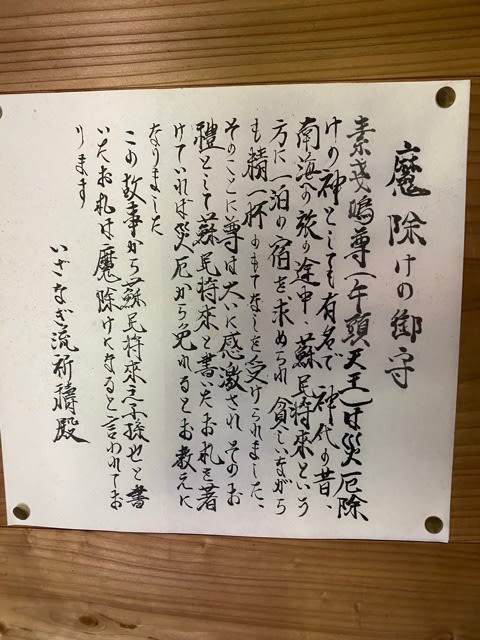 魔除けの御守
素戔嗚尊(午頭天王)は災厄除
けの神としても有名で神代の昔、
南海への旅の途中、蘇民将来という
方に一泊の宿を求められ貧しいながら
も精一杯のもてなしを受けられました、
そのことに尊は大いに感激され、そのお
禮として蘇民将来と書いたお札を著
けていれば災厄から免れるとお教えに
なりました
この故事から蘇民将来之子孫也と書
いたお札は魔除けになると言われてお
ります
いざなぎ流祈禱殿